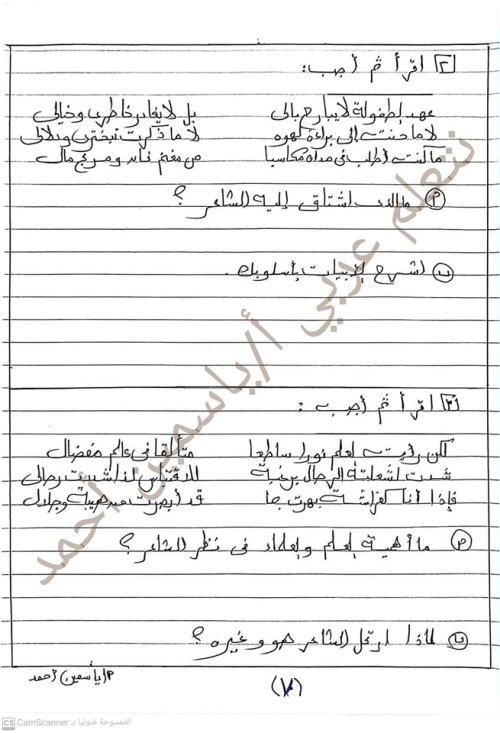 ٢ اقرأ ثم أجب:
عهد الطفولة لا يبارح بالى بل لا يغادر خاطرى وخيالى
لا ما حننت إلى براءة لهوه لا ما ذكرت تبخترى ودلالى
ما كنت أطلب فى مداه مكاسبا من مغنم فان ومربح مال
٢ ما الذى اشتاق إليه الشاعر؟
ب اشرح الأبيات بأسلوبك.
٣ اقرأ ثم أجب:
لكن رأيت العلم نورا ساطعا متألقا فى عالم مفضال
شدت أشعلته الرحال برغبة للاقتباس لذا شددت رحالى
فإذا أنا كفراشة بهرت بما قد أبصرت من هيبة وجلال
٢ ما أهمية العلم والعلماء فى نظر الشاعر؟
ب لماذا ارتحل الشاعر هو وغيره؟
أ/ ياسمين أحمد
(٧)
نتعلم عربي أ/ياسمين أحمد
CS CamScanner الممسوحة ضوئيا بـ